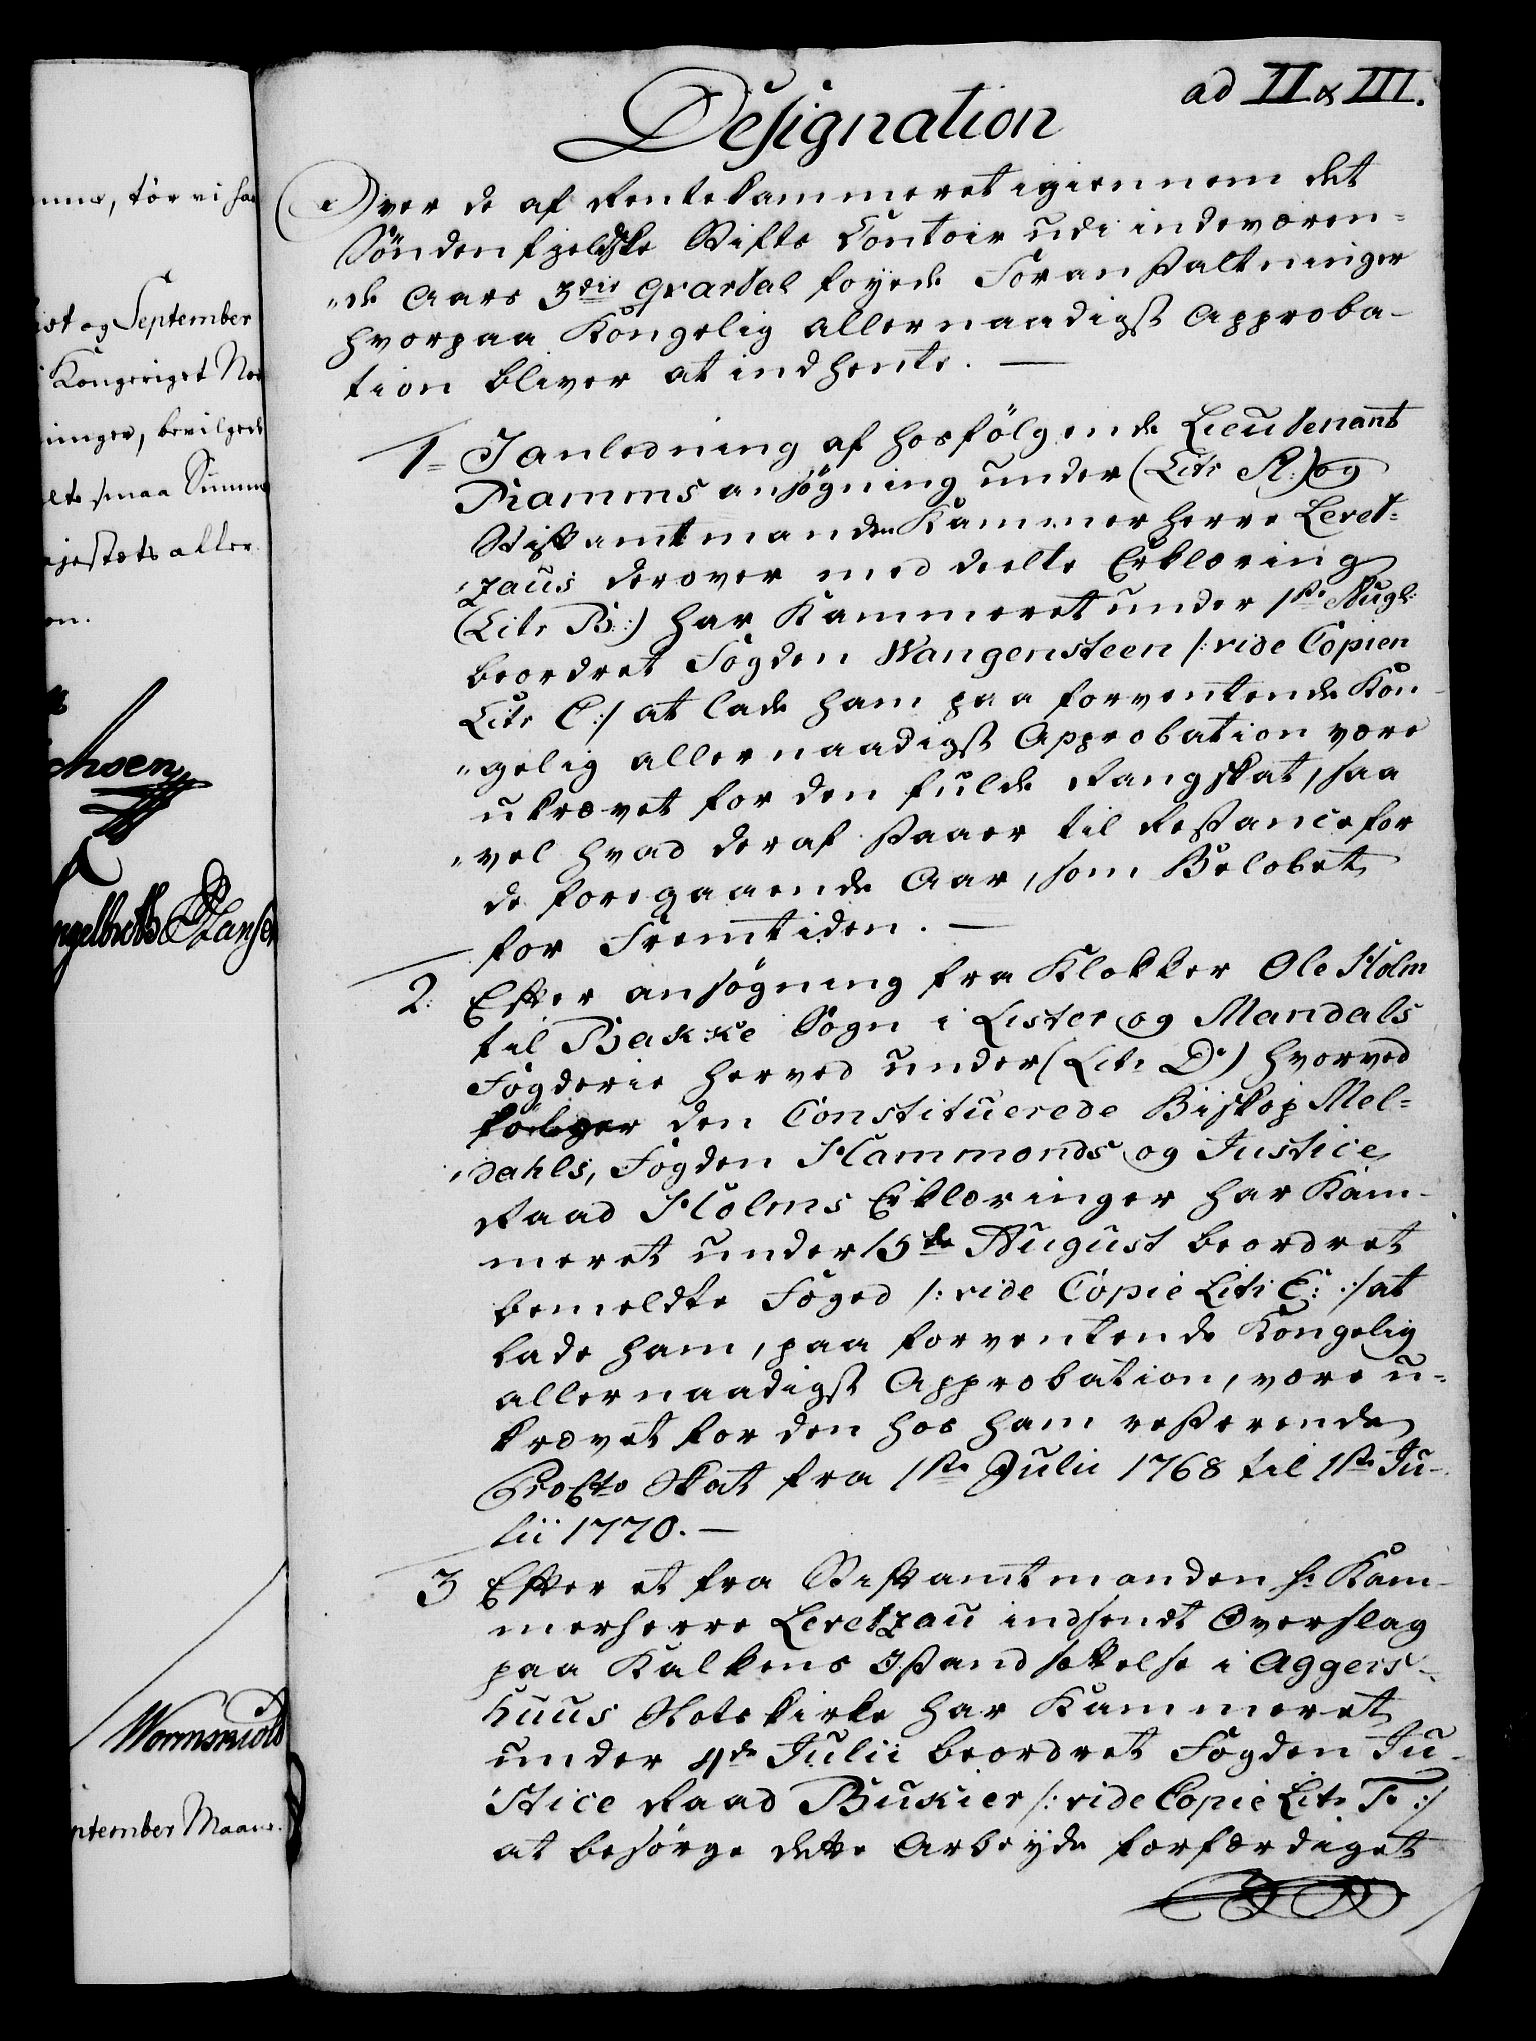 ad II & III.
Designation
Over de af Rentekammeret igiennem det
Söndenfieldske Stifts Contoir udi indeværen-
"de Aars 3die Qvartal föyede Foranstaltninger
hvorpaa Kongelig allernaadigst Approba-
tion bliver at indhente. —
1= I anledning af hosfölgende Lieutenant
Ramms ansögning under (Litr A:) og
Stiftamtmanden Kammerherre Levet-
zaus derover meddeelte Erklæring
(Litr B:) har Kammeret under 1ste Augt:
beordret Fogden Wangensteen /: vide Copien
Litr C :/ at lade ham paa forventende Kon-
"gelig allernaadigst Approbation være
ukrævet for den fulde Rangskat, saa
"vel hvad deraf staaer til Restance for
de foregaaende Aar, som Belöbet
for Fremtiden. —
2: Efter ansögning fra Klokker Ole Holm
til Bakke Sogn i Lister og Mandals
Fogderie herved under (Litr D:) hvorved
fölger den Constituerede Biskop Mel-
dahls, Fogden Hammonds og Justice
Raad Holms Erklæringer har Kam-
meret under 15de August beordret
bemeldte Foged /: vide Copie Litr E: :/ at
lade ham, paa forventende Kongelig
allernaadigst Approbation, være u-
krævet for den hos ham resterende
ProCto Skat fra 1ste Julii 1768 til 1ste Ju-
lii 1770. —
3 Efter et fra Stiftamtmanden Hr Kam-
merherre Levetzau indsendt Overslag
paa Kalkens Istandsettelse i Aggers-
huus Slots kirke har Kammeret
under 4de Julii beordret Fogden Ju-
stice Raad Buxier /: vide Copie Litr F. :/
at besörge dette Arbeyde forfærdiget
mme, tör vi haa
ist og September
Kongeriget Nor
inger, bevilgede
elte smaa Summe
ajestets aller
en.
chsen
ngelbreth Hansen
Wormskiold
ptember Maan.